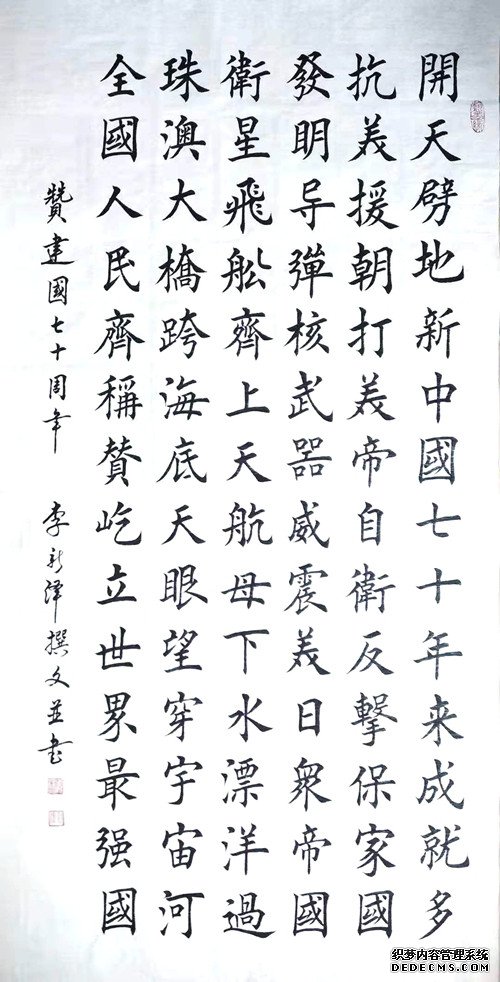 開天劈地新中國七十年来成就多
抗美援朝打美帝自衛反擊保家國
發明导彈核武器威震美日衆帝國
衛星飛船齊上天航母下水漂洋過
珠澳大橋跨海底天眼望穿宇宙河
全國人民齊稱贊屹立世累最强國
贊建國七十周年 李新澤撰文並書
织梦内容管理系统
DEDECMS.COM